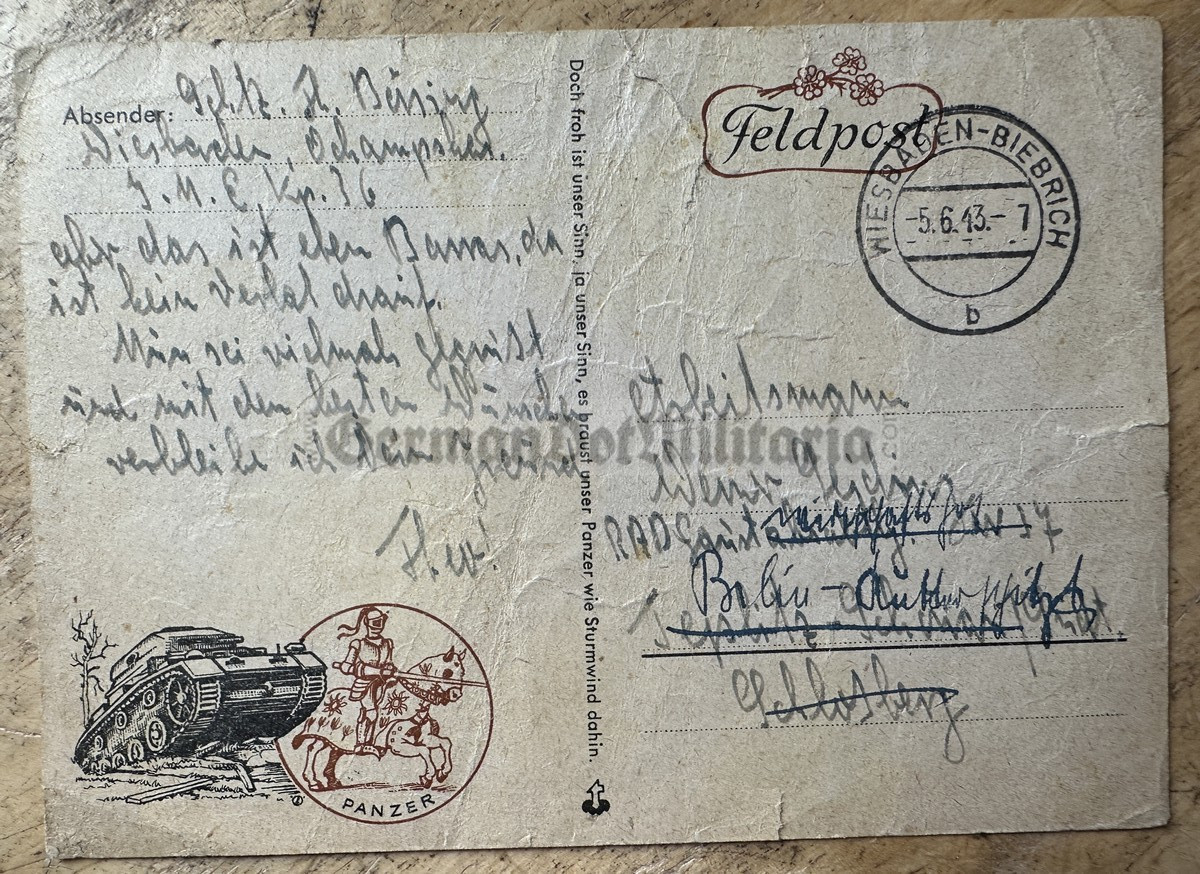 Absender: Schtz. H. Büssing
Wiesbaden, Ochamps
J. M. E. Kp. 36
aber das ist eben Barras, da
ist kein Verlaß drauf.
Nun sei vielmals gegrüßt
und mit den besten Wünschen
verbleibe ich Dein Freund
PANZER
Doch froh ist unser Sinn, ja unser Sinn, es braust unser Panzer wie Sturmwind dahin.
Feldpost
WIESBADEN-BIEBRICH
-5.6.43.- 7
b
Arbeitsmann
Werner
RAD
Berlin-
Teplitz-Schönau
Schloßberg
GermanHotMilitaria